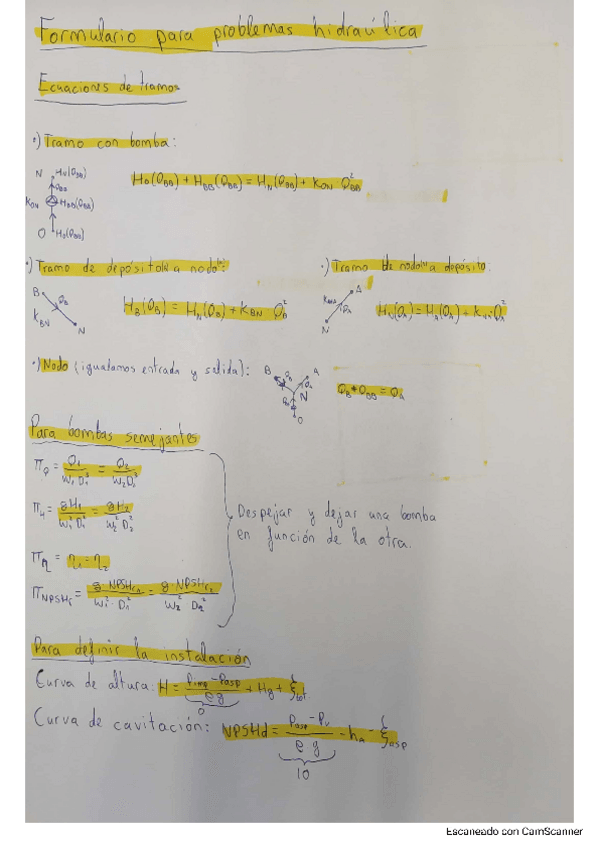 Formulario para problemas hidraúlica
Ecuaciones de tramos
•) Tramo con bomba:
N H_N(Q_BB)
Q_BB
K_ON H_BB(Q_BB)
O H_O(Q_BB)
H_O(Q_BB) + H_BB(Q_BB) = H_N(Q_BB) + K_ON Q_BB²
•) Tramo de depósito(B) a nodo(N):
B Q_B
K_BN
N
H_B(Q_B) = H_N(Q_B) + K_BN Q_B²
•) Tramo de nodo(N) a depósito:
A
Q_A
N
H_N(Q_A) = H_A(Q_A) + K_NA Q_A²
•) Nodo (igualamos entrada y salida):
B Q_B Q_A A
N
O
Q_B + Q_BB = Q_A
Para bombas semejantes
π_Q = Q_1 / W_1 D_1³ = Q_2 / W_2 D_2³
π_H = gH_1 / W_1² D_1² = gH_2 / W_2² D_2²
π_η = η_1 = η_2
π_NPSHr = g·NPSHr_1 / W_1²·D_1² = g·NPSHr_2 / W_2² D_2²
Despejar y dejar una bomba
en función de la otra.
Para definir la instalación
Curva de altura: H = (P_imp - P_asp) / ρg + Hg + ξ_tot
0
Curva de cavitación: NPSHd = (P_asp - P_v) / ρg - h_a - ξ_asp
10
Escaneado con CamScanner